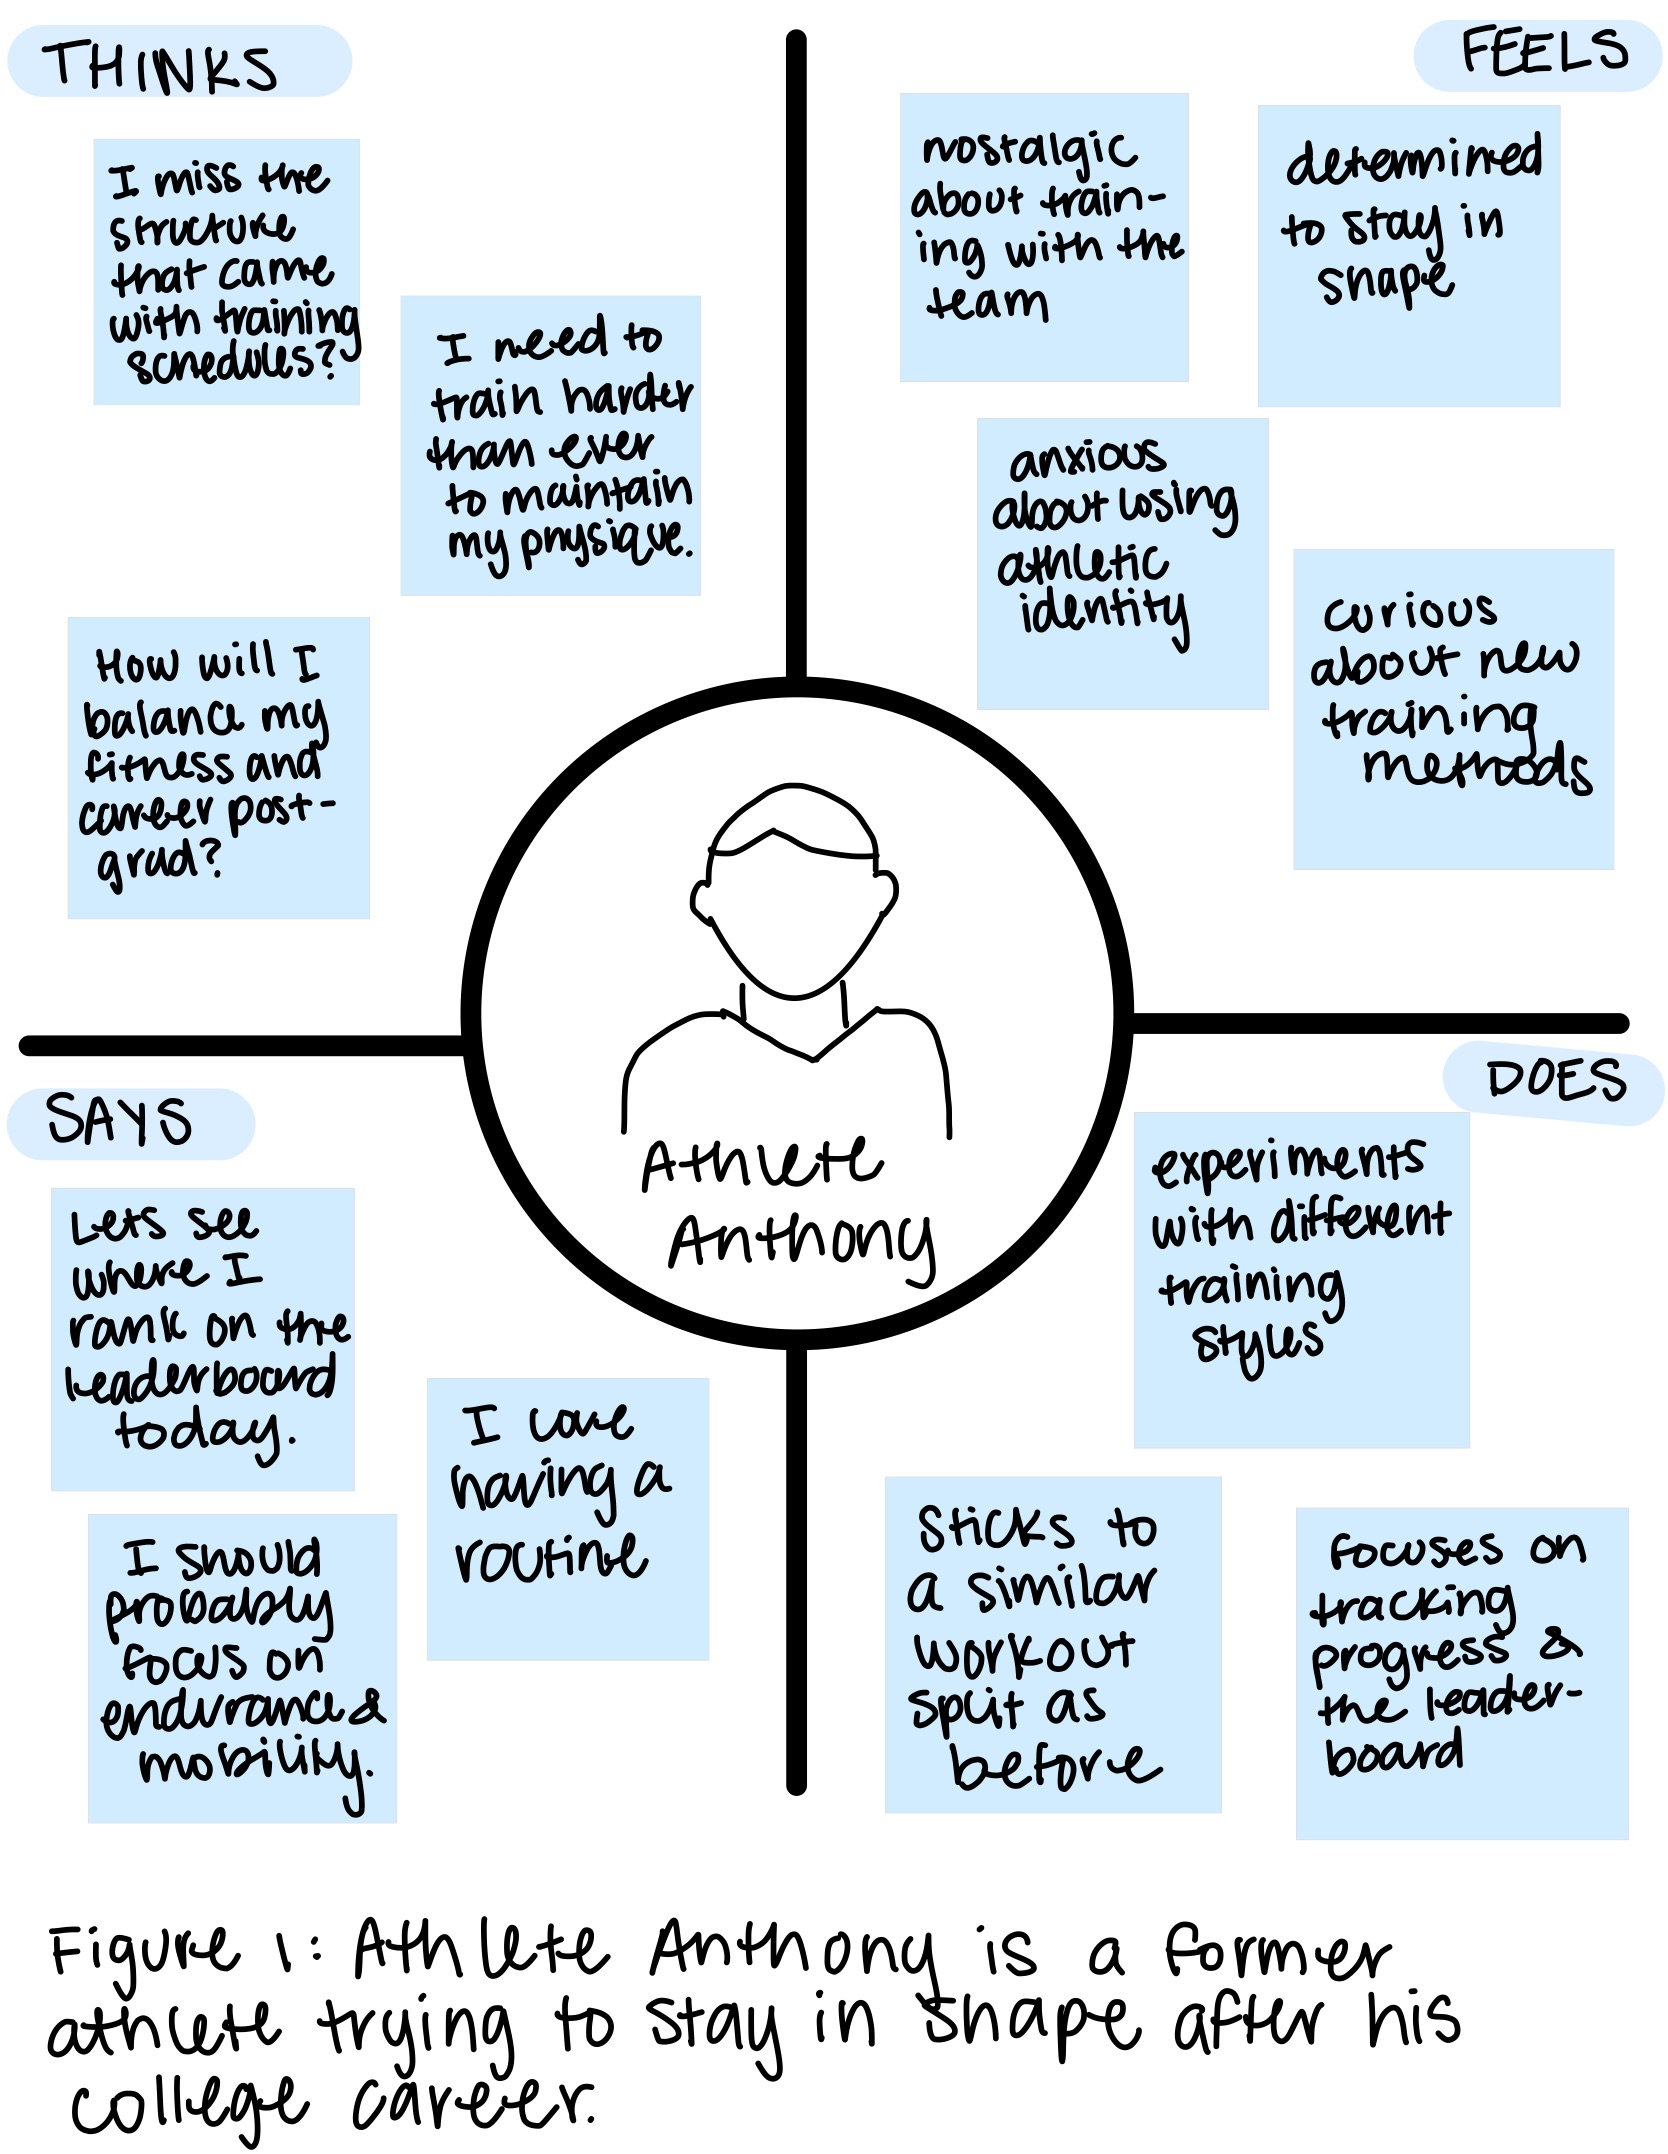 THINKS
I miss the
structure
that came
with training
schedules?
I need to
train harder
than ever
to maintain
my physique.
How will I
balance my
fitness and
career post-
grad?
FEELS
nostalgic
about train-
ing with the
team
determined
to stay in
shape
anxious
about losing
athletic
identity
curious
about new
training
methods
Athlete
Anthony
SAYS
Lets see
where I
rank on the
leaderboard
today.
I love
having a
routine
I should
probably
focus on
endurance &
mobility.
DOES
experiments
with different
training
styles
Sticks to
a similar
workout
split as
before
focuses on
tracking
progress &
the leader-
board
Figure 1: Athlete Anthony is a former
athlete trying to stay in shape after his
college career.